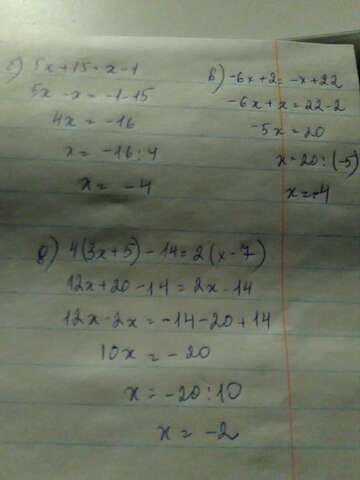 г) 5x+15=x-1
5x-x=-1-15
4x=-16
x=-16:4
x=-4
б) -6x+2=-x+22
-6x+x=22-2
-5x=20
x=20:(-5)
x=-4
д) 4(3x+5)-14=2(x-7)
12x+20-14=2x-14
12x-2x=-14-20+14
10x=-20
x=-20:10
x=-2